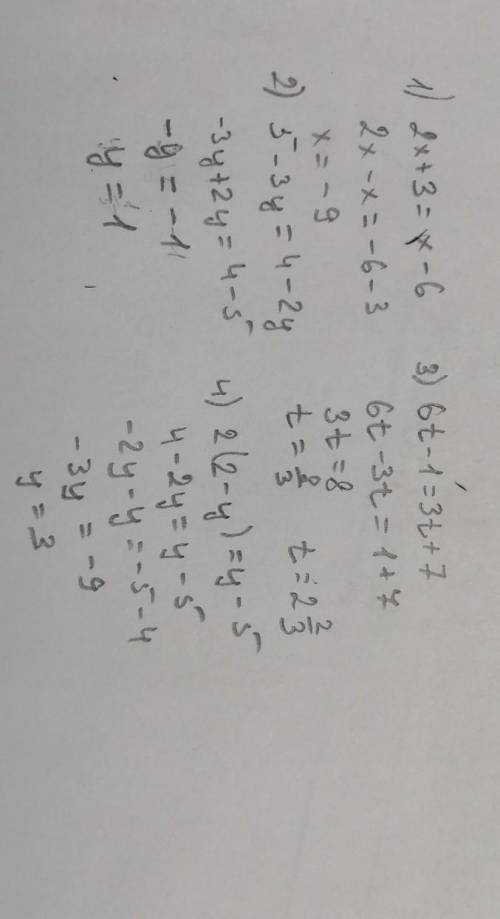 1) 2x+3=x-6
2x-x=-6-3
x=-9
2) 5-3y=4-2y
-3y+2y=4-5
-y=-1
y=1
3) 6t-1=3t+7
6t-3t=1+7
3t=8
t=8/3 t=2 2/3
4) 2(2-y)=y-5
4-2y=y-5
-2y-y=-5-4
-3y=-9
y=3